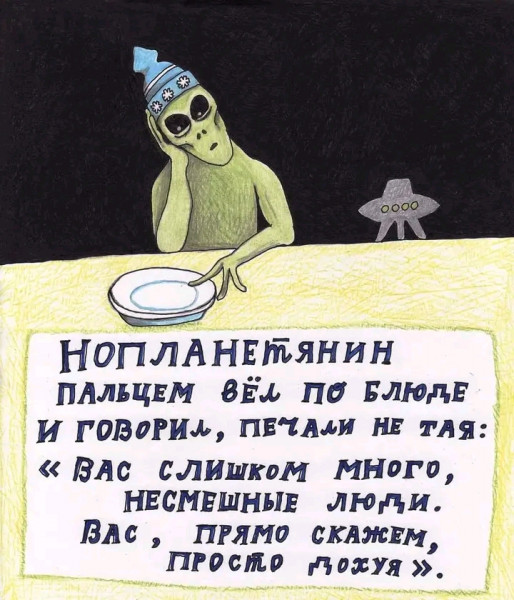 Нопланетянин
пальцем вёл по блюде
и говорил, печали не тая:
«Вас слишком много,
несмешные люди.
Вас, прямо скажем,
просто дохуя».